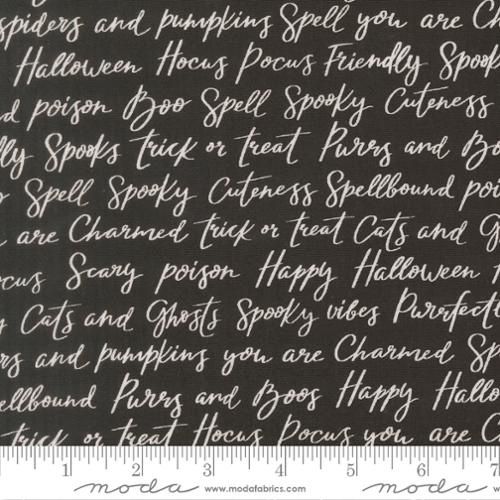 spiders and pumpkins Spell you are Ch
Halloween Hocus Pocus Friendly Spook
d poison Boo Spell Spooky Cuteness
lly Spooks trick or treat Purrs and Bo
Spell Spooky Cuteness Spellbound poi
are Charmed trick or treat Cats and G
ocus Scary poison Happy Halloween
y Cats and Ghosts Spooky vibes Purrfectl
rs and pumpkins you are Charmed Sp
ellbound Purrs and Boos Happy Hallo
trick or treat Hocus Pocus you are C
1 2 3 4 5 6 7
moda www.modafabrics.com moda www.modafabrics.com mod